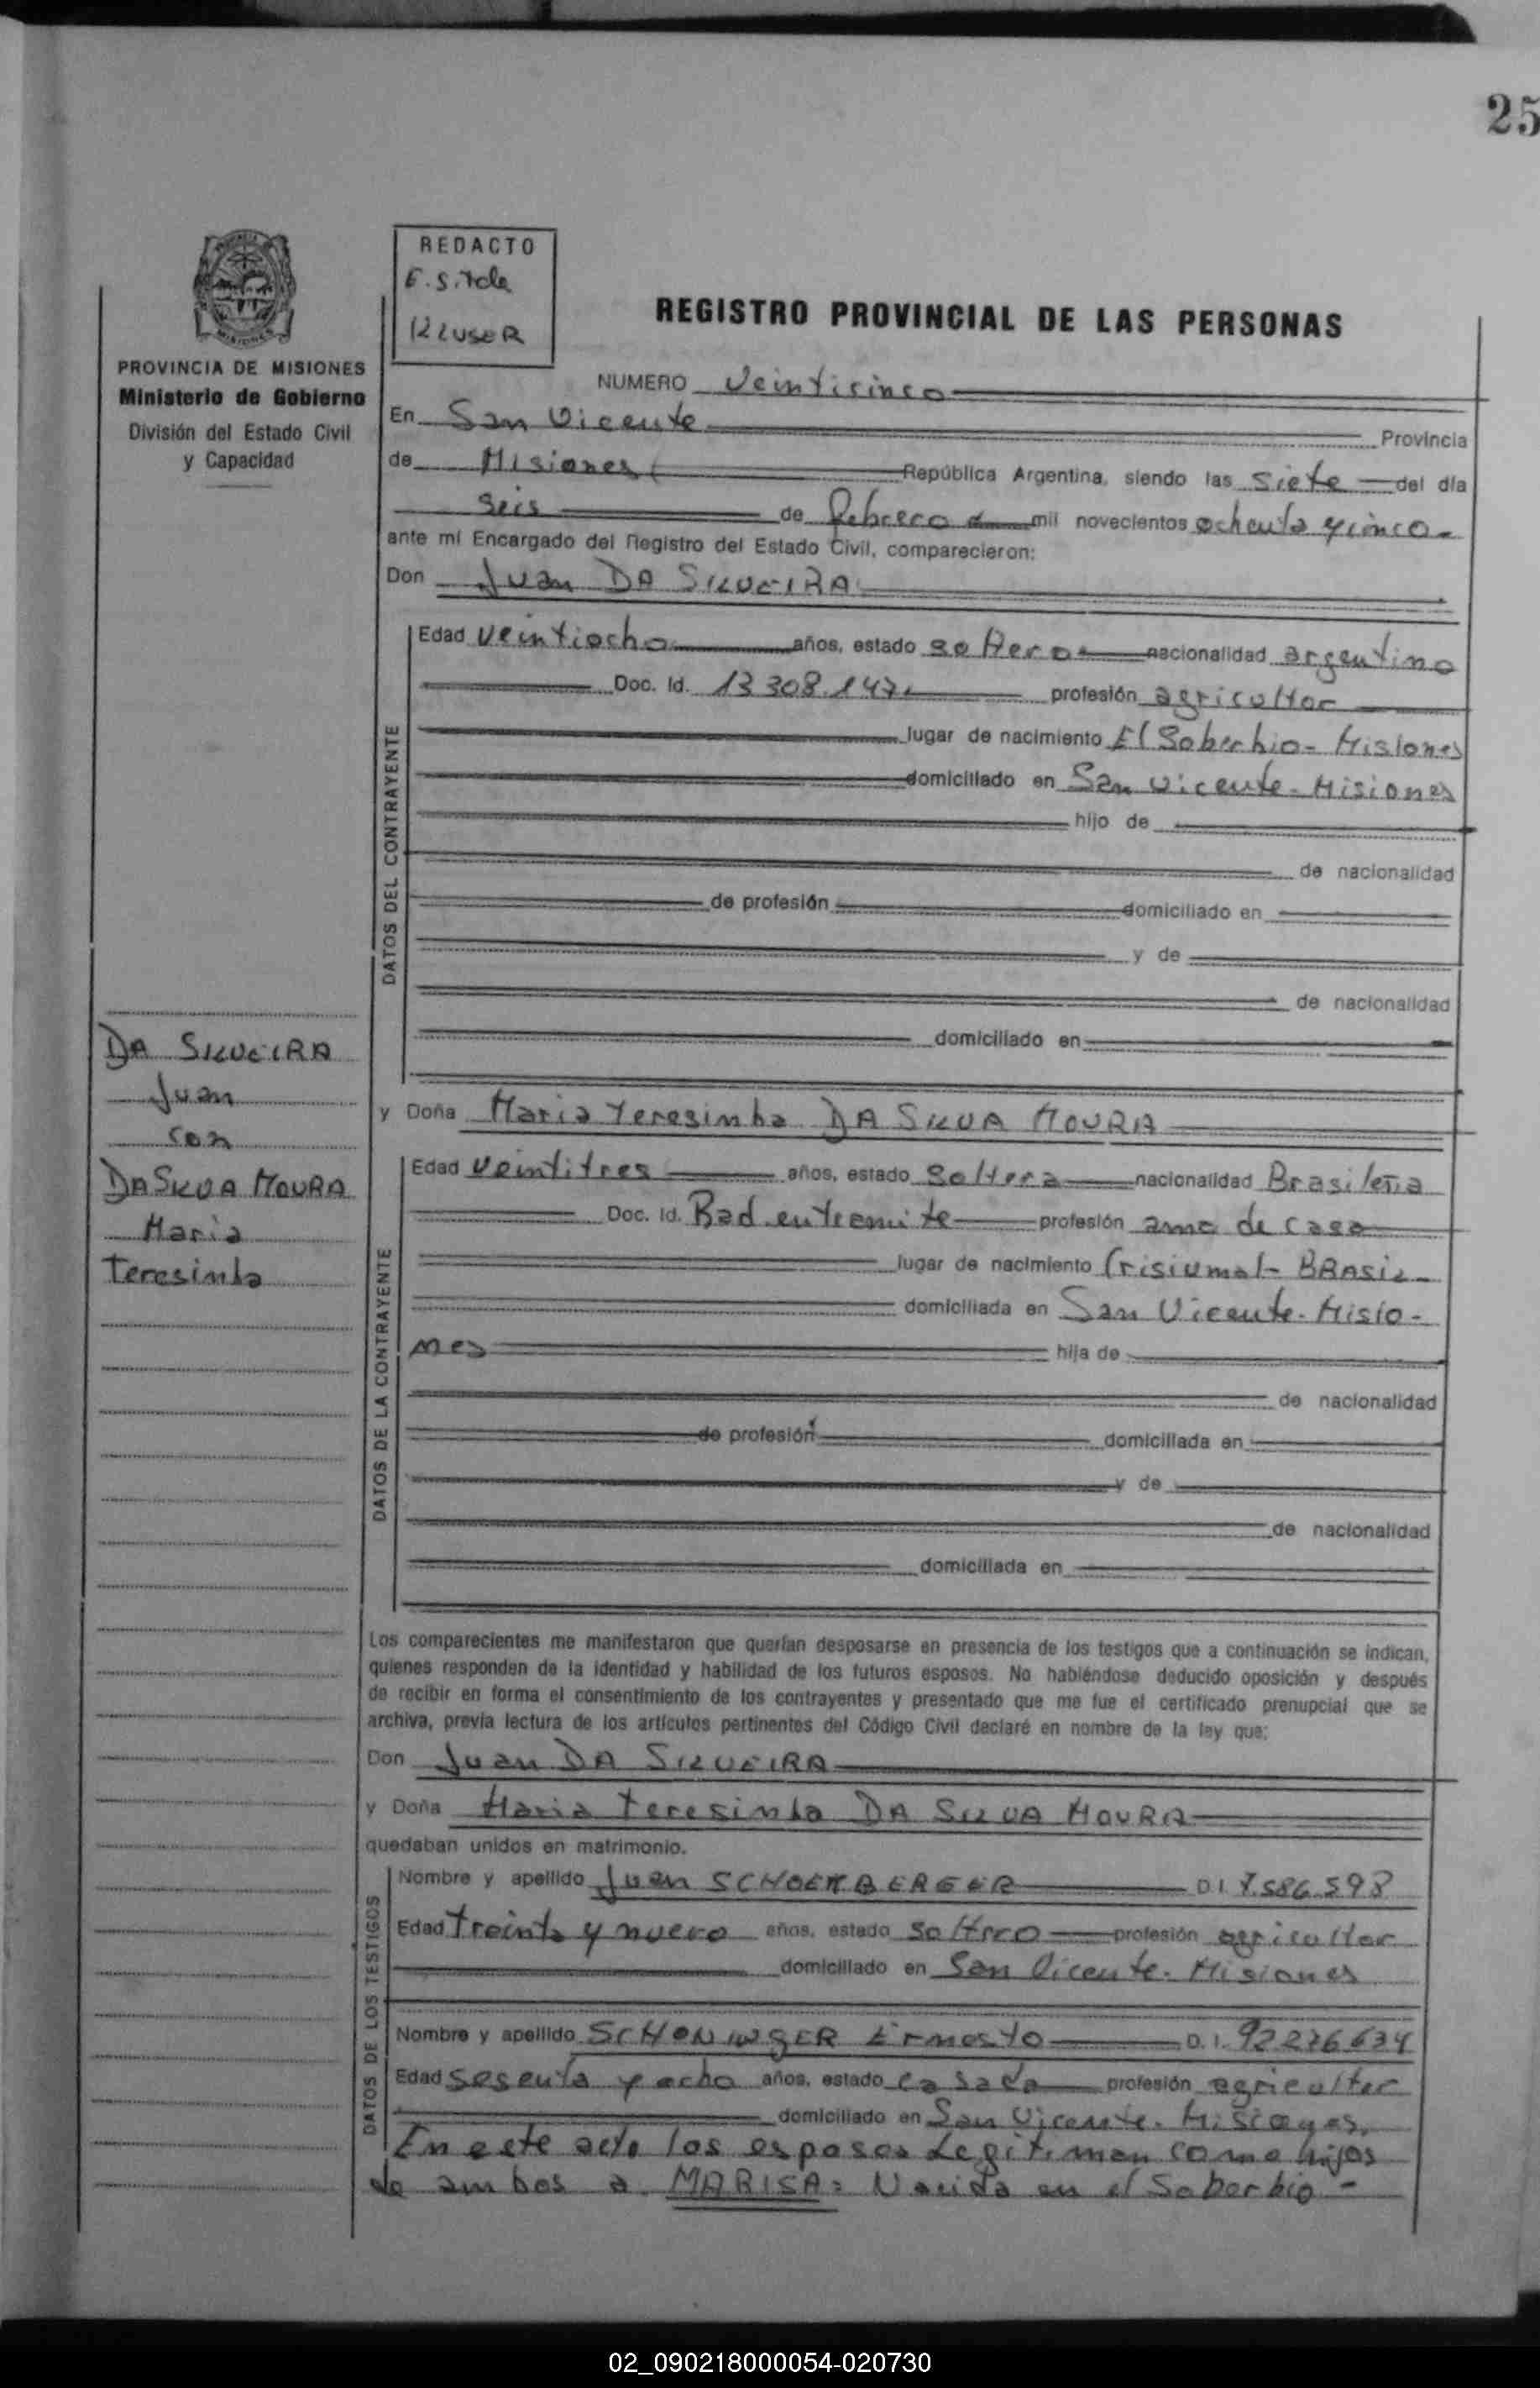 25
REDACTO
PROVINCIA DE MISIONES
Ministerio de Gobierno
División del Estado Civil
y Capacidad
REGISTRO PROVINCIAL DE LAS PERSONAS
NUMERO Veinticinco
En San Vicente Provincia
de Misiones República Argentina, siendo las siete del día
seis de febrero mil novecientos ochenta y cinco
ante mí Encargado del Registro del Estado Civil, comparecieron:
Don Juan DA SILVEIRA
DATOS DEL CONTRAYENTE
Edad veintiocho años, estado soltero nacionalidad argentino
Doc. Id. 13 308.147 profesión agricultor
lugar de nacimiento El Soberbio - Misiones
domiciliado en San Vicente - Misiones
hijo de
de nacionalidad
de profesión domiciliado en
y de
de nacionalidad
domiciliado en
DA SILVEIRA
Juan
con
DA SILVA MOURA
Maria
Teresinha
y Doña Maria Teresinha DA SILVA MOURA
DATOS DE LA CONTRAYENTE
Edad veintitres años, estado soltera nacionalidad Brasileña
Doc. Id. Rad. en tramite profesión ama de casa
lugar de nacimiento Crisiumal - BRASIL
domiciliada en San Vicente - Misio-
nes hija de
de nacionalidad
de profesión domiciliada en
y de
de nacionalidad
domiciliada en
Los comparecientes me manifestaron que querían desposarse en presencia de los testigos que a continuación se indican,
quienes responden de la identidad y habilidad de los futuros esposos. No habiéndose deducido oposición y después
de recibir en forma el consentimiento de los contrayentes y presentado que me fue el certificado prenupcial que se
archiva, previa lectura de los artículos pertinentes del Código Civil declaré en nombre de la ley que:
Don Juan DA SILVEIRA
y Doña Maria Teresinha DA SILVA MOURA
quedaban unidos en matrimonio.
DATOS DE LOS TESTIGOS
Nombre y apellido Juan SCHOENBERGER D.I. 7.586.598
Edad treinta y nueve años, estado soltero profesión agricultor
domiciliado en San Vicente - Misiones
Nombre y apellido SCHONINGER Ernesto D.I. 92276634
Edad sesenta y ocho años, estado casado profesión agricultor
domiciliado en San Vicente - Misiones.
En este acto los esposos Legitiman como hijos
de ambos a MARISA: Nacida en el Soberbio -
02_090218000054-020730